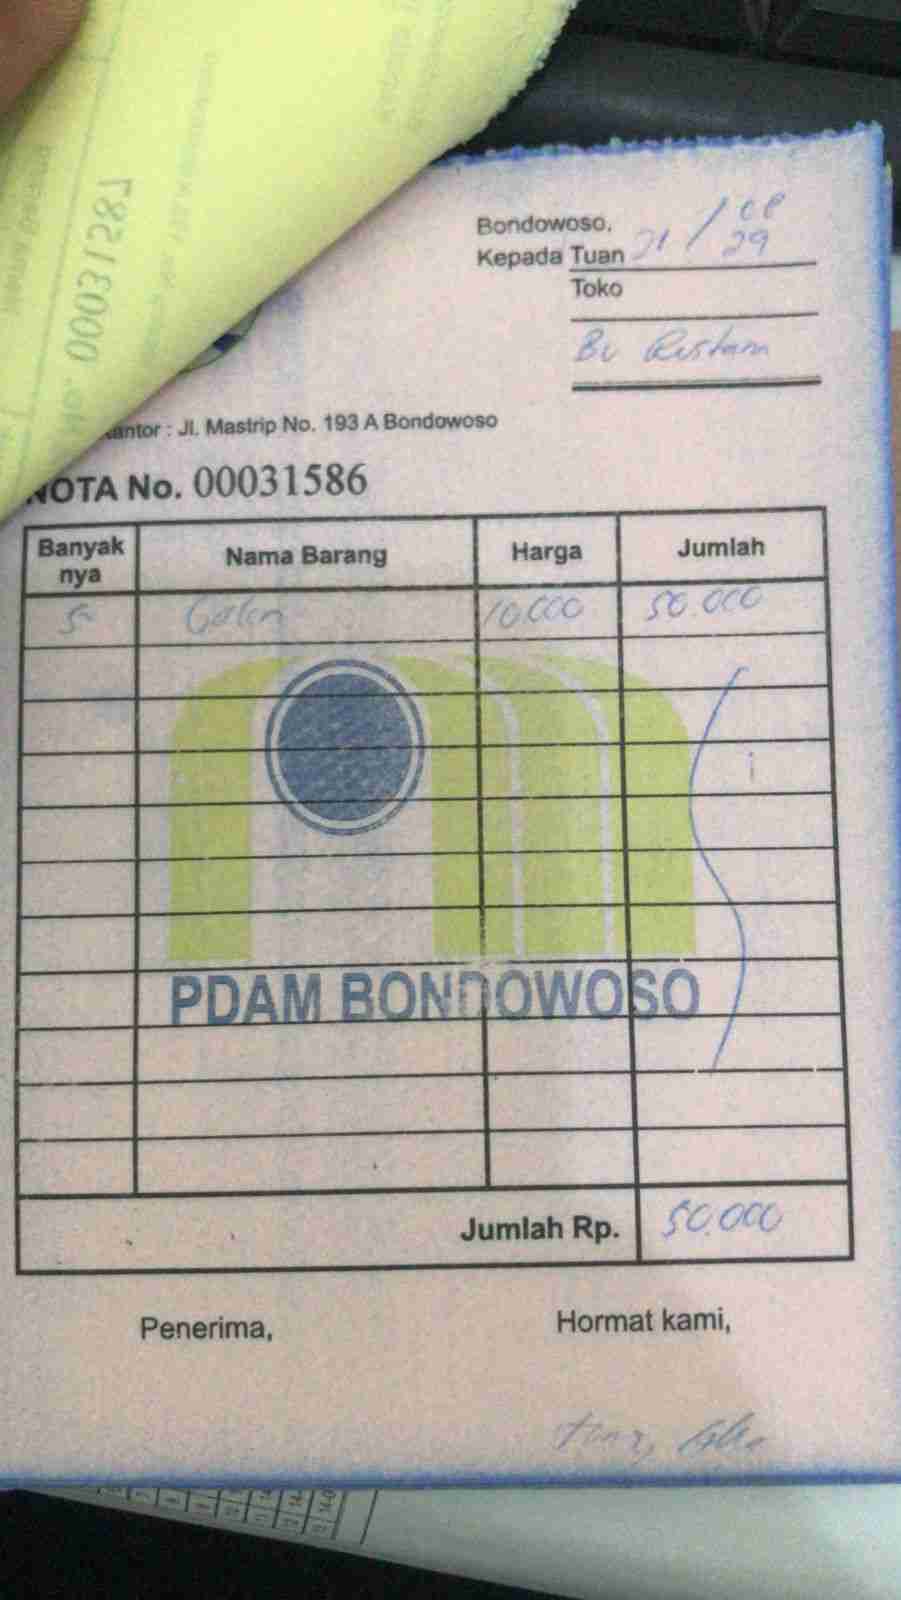 00031587
Bondowoso, 21 / 08
Kepada Tuan 29
Toko
Bu Rustam
Kantor : Jl. Mastrip No. 193 A Bondowoso
NOTA No. 00031586
Banyak nya Nama Barang Harga Jumlah
5 Galon 10.000 50.000
PDAM BONDOWOSO
Jumlah Rp. 50.000
Penerima, Hormat kami,